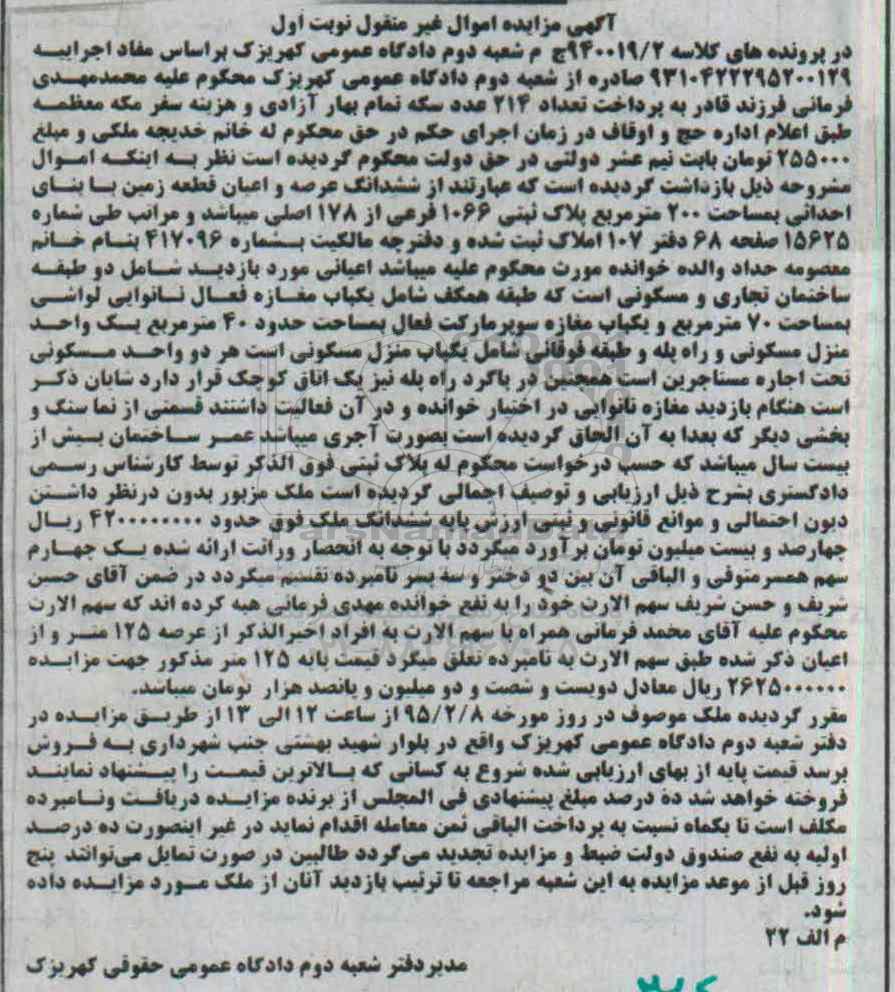 آگهی مزایده اموال غیر منقول نوبت اول
در پرونده های کلاسه ۹۴۰۰۱۹/۲ج م شعبه دوم دادگاه عمومی کهریزک براساس مفاد اجراییه
۹۳۱۰۴۲۲۲۹۵۲۰۰۱۲۹ صادره از شعبه دوم دادگاه عمومی کهریزک محکوم علیه محمدمهدی
فرمانی فرزند قادر به پرداخت تعداد ۲۱۴ عدد سکه تمام بهار آزادی و هزینه سفر مکه معظمه
طبق اعلام اداره حج و اوقاف در زمان اجرای حکم در حق محکوم له خانم خدیجه ملکی و مبلغ
۲۵۵۰۰۰ تومان بابت نیم عشر دولتی در حق دولت محکوم گردیده است نظر به اینکه اموال
مشروحه ذیل بازداشت گردیده است که عبارتند از ششدانگ عرصه و اعیان قطعه زمین با بنای
احداثی بمساحت ۲۰۰ مترمربع پلاک ثبتی ۱۰۶۶ فرعی از ۱۷۸ اصلی میباشد و مراتب طی شماره
۱۵۶۲۵ صفحه ۶۸ دفتر ۱۰۷ املاک ثبت شده و دفترچه مالکیت بشماره ۴۱۷۰۹۶ بنام خانم
معصومه حداد والده خوانده مورث محکوم علیه میباشد اعیانی مورد بازدید شامل دو طبقه
ساختمان تجاری و مسکونی است که طبقه همکف شامل یکباب مغازه فعال نانوایی لواشی
بمساحت ۷۰ مترمربع و یکباب مغازه سوپرمارکت فعال بمساحت حدود ۴۰ مترمربع یک واحد
منزل مسکونی و راه پله و طبقه فوقانی شامل یکباب منزل مسکونی است هر دو واحد مسکونی
تحت اجاره مستاجرین است همچنین در پاگرد راه پله نیز یک اتاق کوچک قرار دارد شایان ذکر
است هنگام بازدید مغازه نانوایی در اختیار خوانده و در آن فعالیت داشتند قسمتی از نما سنگ و
بخشی دیگر که بعدا به آن الحاق گردیده است بصورت آجری میباشد عمر ساختمان بیش از
بیست سال میباشد که حسب درخواست محکوم له پلاک ثبتی فوق الذکر توسط کارشناس رسمی
دادگستری بشرح ذیل ارزیابی و توصیف اجمالی گردیده است ملک مزبور بدون درنظر داشتن
دیون احتمالی و موانع قانونی و ثبتی ارزش پایه ششدانگ ملک فوق حدود ۴۲۰۰۰۰۰۰۰۰ ریال
چهارصد و بیست میلیون تومان برآورد میگردد با توجه به انحصار وراثت ارائه شده یک چهارم
سهم همسرمتوفی و الباقی آن بین دو دختر و سه پسر نامبرده تقسیم میگردد در ضمن آقای حسن
شریف و حسن شریف سهم الارث خود را به نفع خوانده مهدی فرمانی هبه کرده اند که سهم الارث
محکوم علیه آقای محمد فرمانی همراه با سهم الارث به افراد اخیرالذکر از عرصه ۱۲۵ متر و از
اعیان ذکر شده طبق سهم الارث به نامبرده تعلق میگرد قیمت پایه ۱۲۵ متر مذکور جهت مزایده
۲۶۲۵۰۰۰۰۰۰ ریال معادل دویست و شصت و دو میلیون و پانصد هزار تومان میباشد.
مقرر گردیده ملک موصوف در روز مورخه ۹۵/۲/۸ از ساعت ۱۲ الی ۱۳ از طریق مزایده در
دفتر شعبه دوم دادگاه عمومی کهریزک واقع در بلوار شهید بهشتی جنب شهرداری به فروش
برسد قیمت پایه از بهای ارزیابی شده شروع به کسانی که بالاترین قیمت را پیشنهاد نمایند
فروخته خواهد شد ده درصد مبلغ پیشنهادی فی المجلس از برنده مزایده دریافت ونامبرده
مکلف است تا یکماه نسبت به پرداخت الباقی ثمن معامله اقدام نماید در غیر اینصورت ده درصد
اولیه به نفع صندوق دولت ضبط و مزایده تجدید می‌گردد طالبین در صورت تمایل می‌توانند پنج
روز قبل از موعد مزایده به این شعبه مراجعه تا ترتیب بازدید آنان از ملک مورد مزایده داده
شود.
م الف ۲۲
مدیردفتر شعبه دوم دادگاه عمومی حقوقی کهریزک